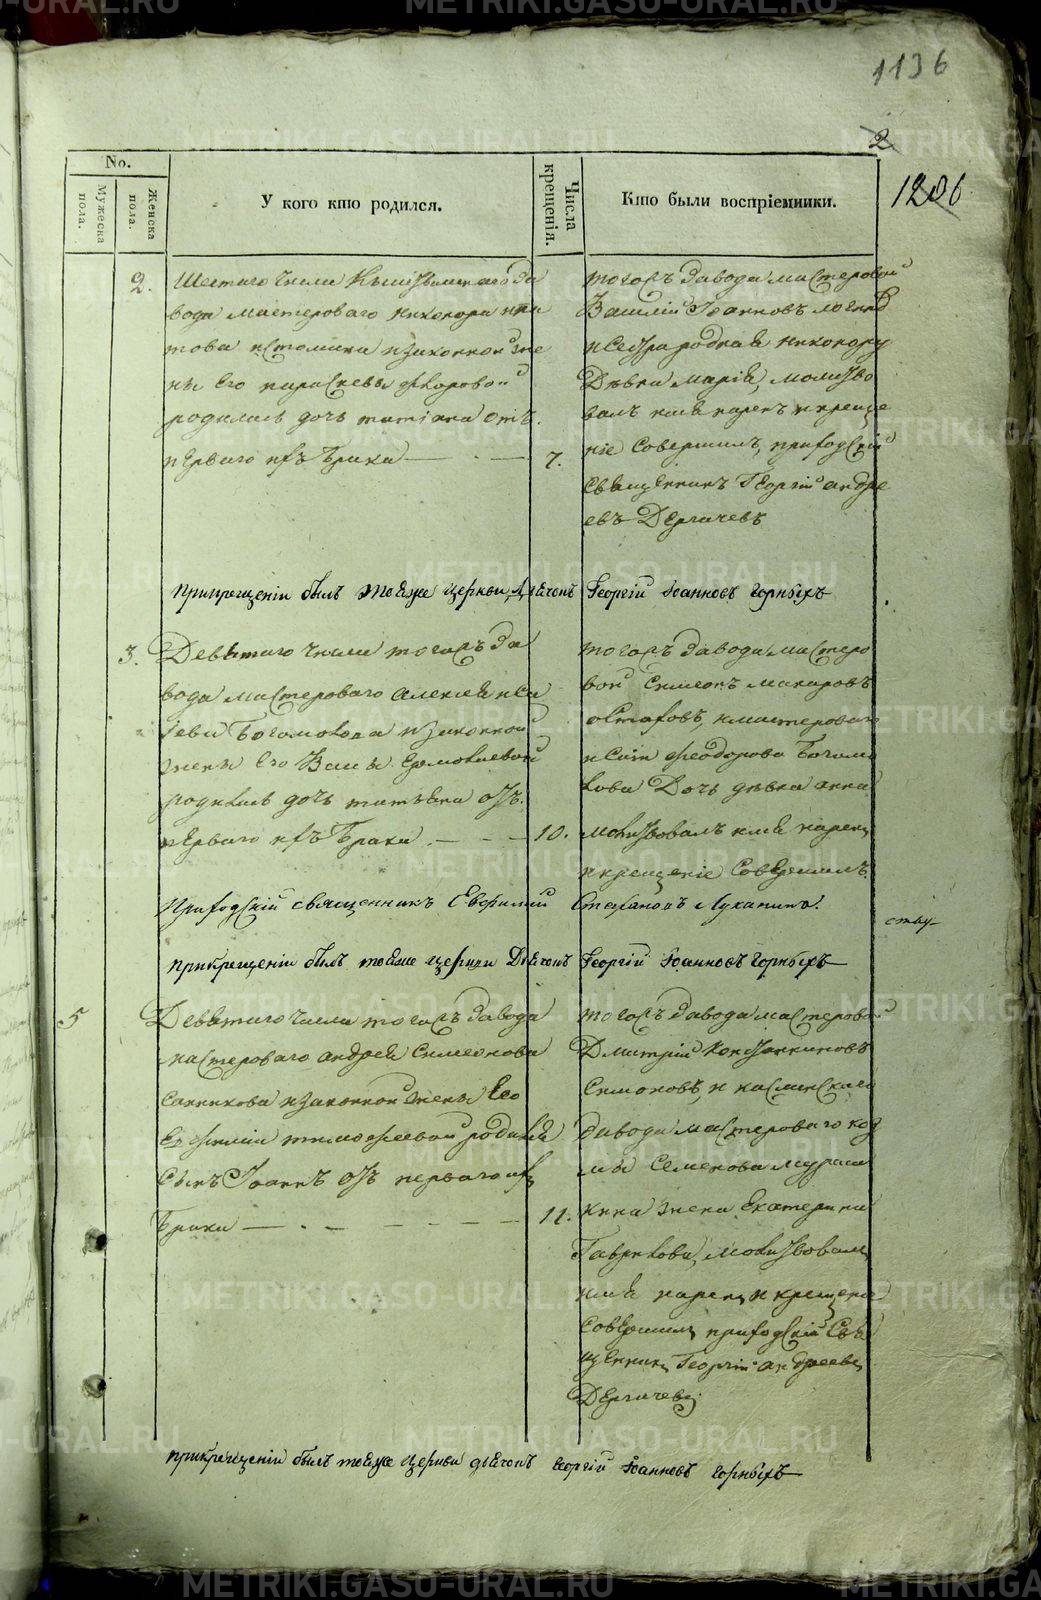 1136
2
1206
No.
Мужеска пола.
Женска пола.
У кого кто родился.
Числа крещенія.
Кто были воспріемники.
2.
Шестаго числа за
вода мастероваго Никонора
това Истомина и законной же
ны его Параскевы Феодоровой
родилась дочь Татіана отъ
перваго ихъ брака
7.
тогожъ завода мастеровой
Василій Іоанновъ Логинов
и сестра родная Никонору
Дѣвка Марія, молитво
валъ имя нарекъ и креще
ніе совершилъ, приходскій
священникъ Георгій Андре
евъ Дергачевъ
При крещеніи былъ тояже церкви Діячокъ Георгій Іоанновъ Горныхъ
3.
Девятаго числа тогожъ за
вода мастероваго Алексея Иса
іева Богомолова и законной
жены его Васы Ермолаевой
родилась дочь Татьяна отъ
перваго ихъ брака
10.
тогожъ завода мастеро
вой Симеонъ Макаровъ
Остаховъ, и мастероваго
Исаіи Феодорова Богомо
лова дочь дѣвка Анна
молитвовалъ имя нарекъ
и крещеніе совершилъ
Приходскій священникъ Евфимій Стефановъ Луканинъ.
При крещеніи былъ тояже церкви Діячокъ Георгій Іоанновъ Горныхъ
5
Девятаго числа тогожъ завода
мастероваго Андрея Симеонова
Санникова и законной жены его
Евфиміи Тимофеевой родился
сынъ Іоаннъ отъ перваго ихъ
брака
11.
тогожъ завода мастеровой
Дмитрій Константиновъ
Симоновъ, и Каслинскаго
завода мастероваго Коз
мы Семенова Мураш
кина жена Екатерина
Гаврилова, молитвовалъ
имя нарекъ и крещеніе
совершилъ приходскій свя
щенникъ Георгій Андреевъ
Дергачевъ
При крещеніи былъ тояже церкви діячокъ Георгій Іоанновъ Горныхъ